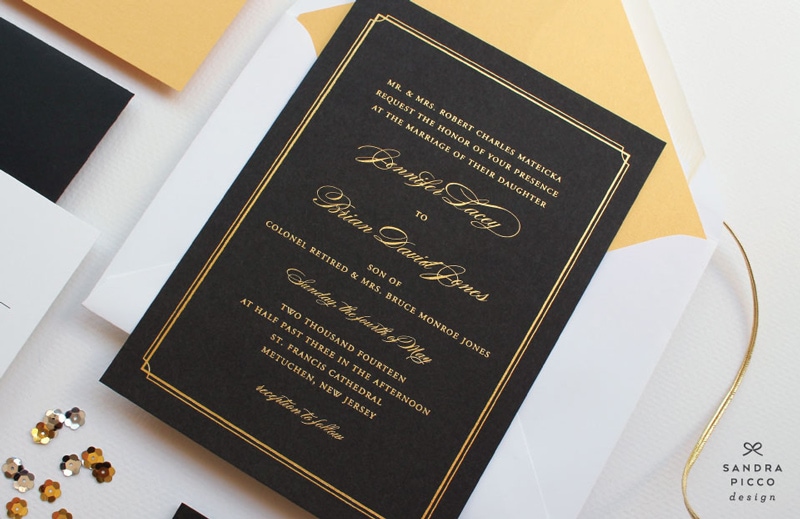 MR. & MRS. ROBERT CHARLES MATEICKA
REQUEST THE HONOR OF YOUR PRESENCE
AT THE MARRIAGE OF THEIR DAUGHTER
Jennifer Lacey
TO
Brian David Jones
SON OF
COLONEL RETIRED & MRS. BRUCE MONROE JONES
Sunday, the fourth of May
TWO THOUSAND FOURTEEN
AT HALF PAST THREE IN THE AFTERNOON
ST. FRANCIS CATHEDRAL
METUCHEN, NEW JERSEY
reception to follow
SANDRA
PICCO
design